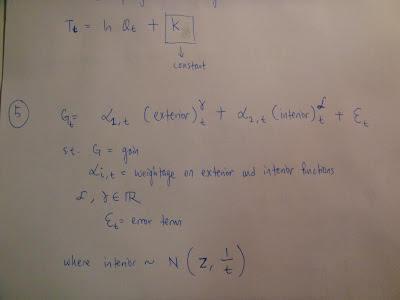 Tt = h Qt + K
↓
constant
5
Gt = α1,t (exterior)t^γ + α2,t (interior)t^δ + εt
s.t. G = gain
αi,t = weightage on exterior and interior functions
δ, γ ∈ ℝ
εt = error term
where interior ~ N (Z, 1/t)